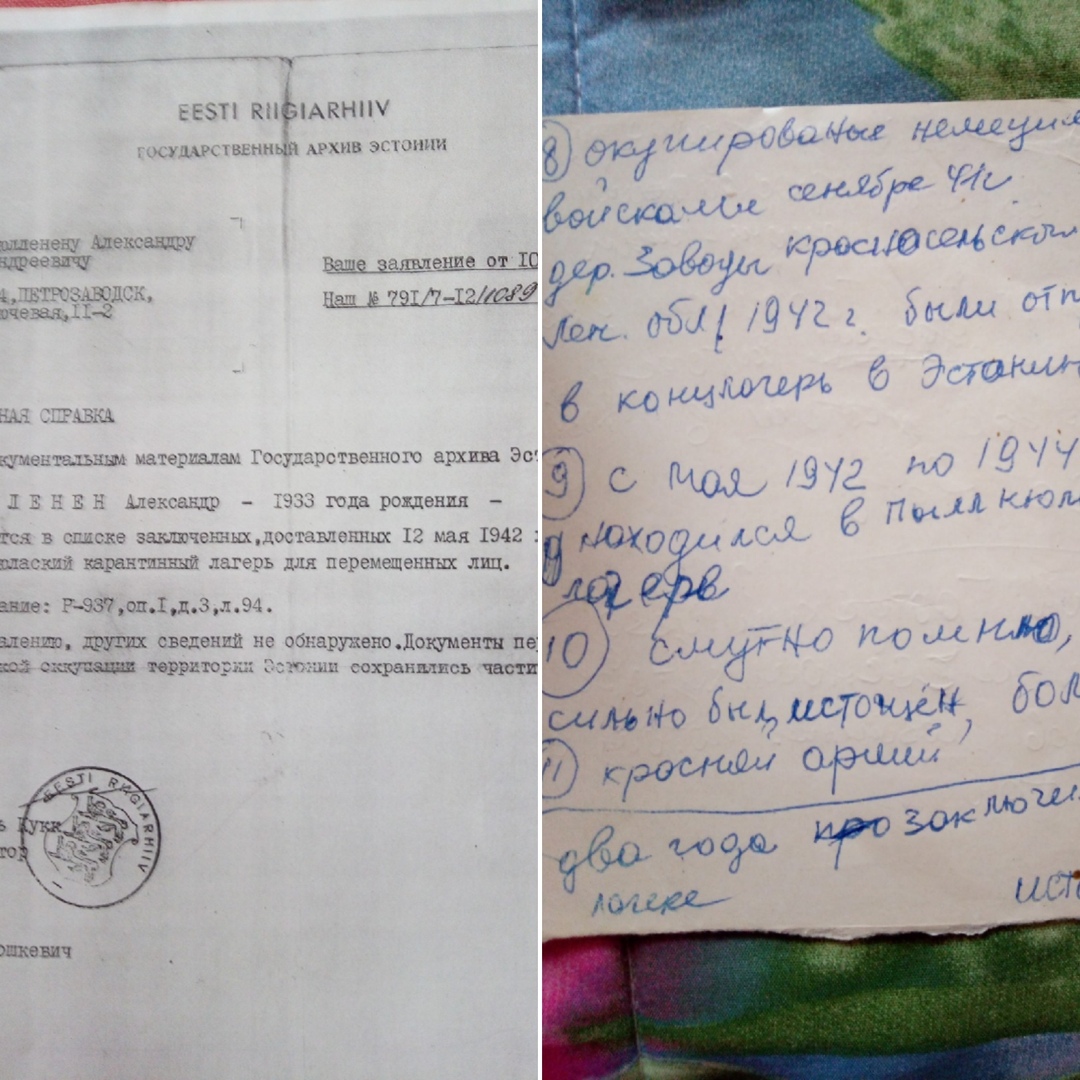 EESTI RIIGIARHIIV
ГОСУДАРСТВЕННЫЙ АРХИВ ЭСТОНИИ
Александру
ндреевичу
4, ПЕТРОЗАВОДСК,
ючевая, II-2
Ваше заявление от IO
Наш № 79I/7-I2/1089
НАЯ СПРАВКА
кументальным материалам Государственного архива Эс
ЛЕНЕН Александр - I933 года рождения -
тся в списке заключенных,доставленных I2 мая I942
карантинный лагерь для перемещенных лиц.
ание: Р-937,оп.I,д.3,л.94.
алению, других сведений не обнаружено.Документы пе
кой оккупации территорки Эстонии сохранились части
EESTI RIIGIARHIIV
Кукк
тор
ошкевич
8 окупированые немецки
войсками сенябре 41г
дер. Заводы красносельский
Лен. обл 1942 г. были отп
в концлогерь в Эстани
9 с Мая 1942 по 1944
находился в Пыллкюл
логерв
10 смутно помню,
сильно был источен, бол
11 красней армий
два года заключен
логере ист